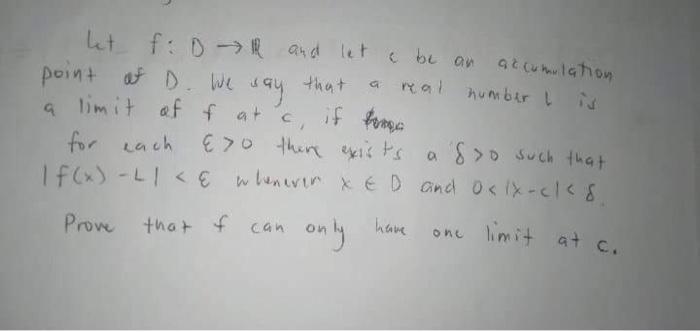 Let f: D → ℝ and let c be an accumulation
point of D. We say that a real number L is
a limit of f at c, if
for each ε>0 there exists a δ>0 such that
|f(x) - L| < ε whenever x ∈ D and 0<|x-c|< δ.
Prove that f can only have one limit at c.